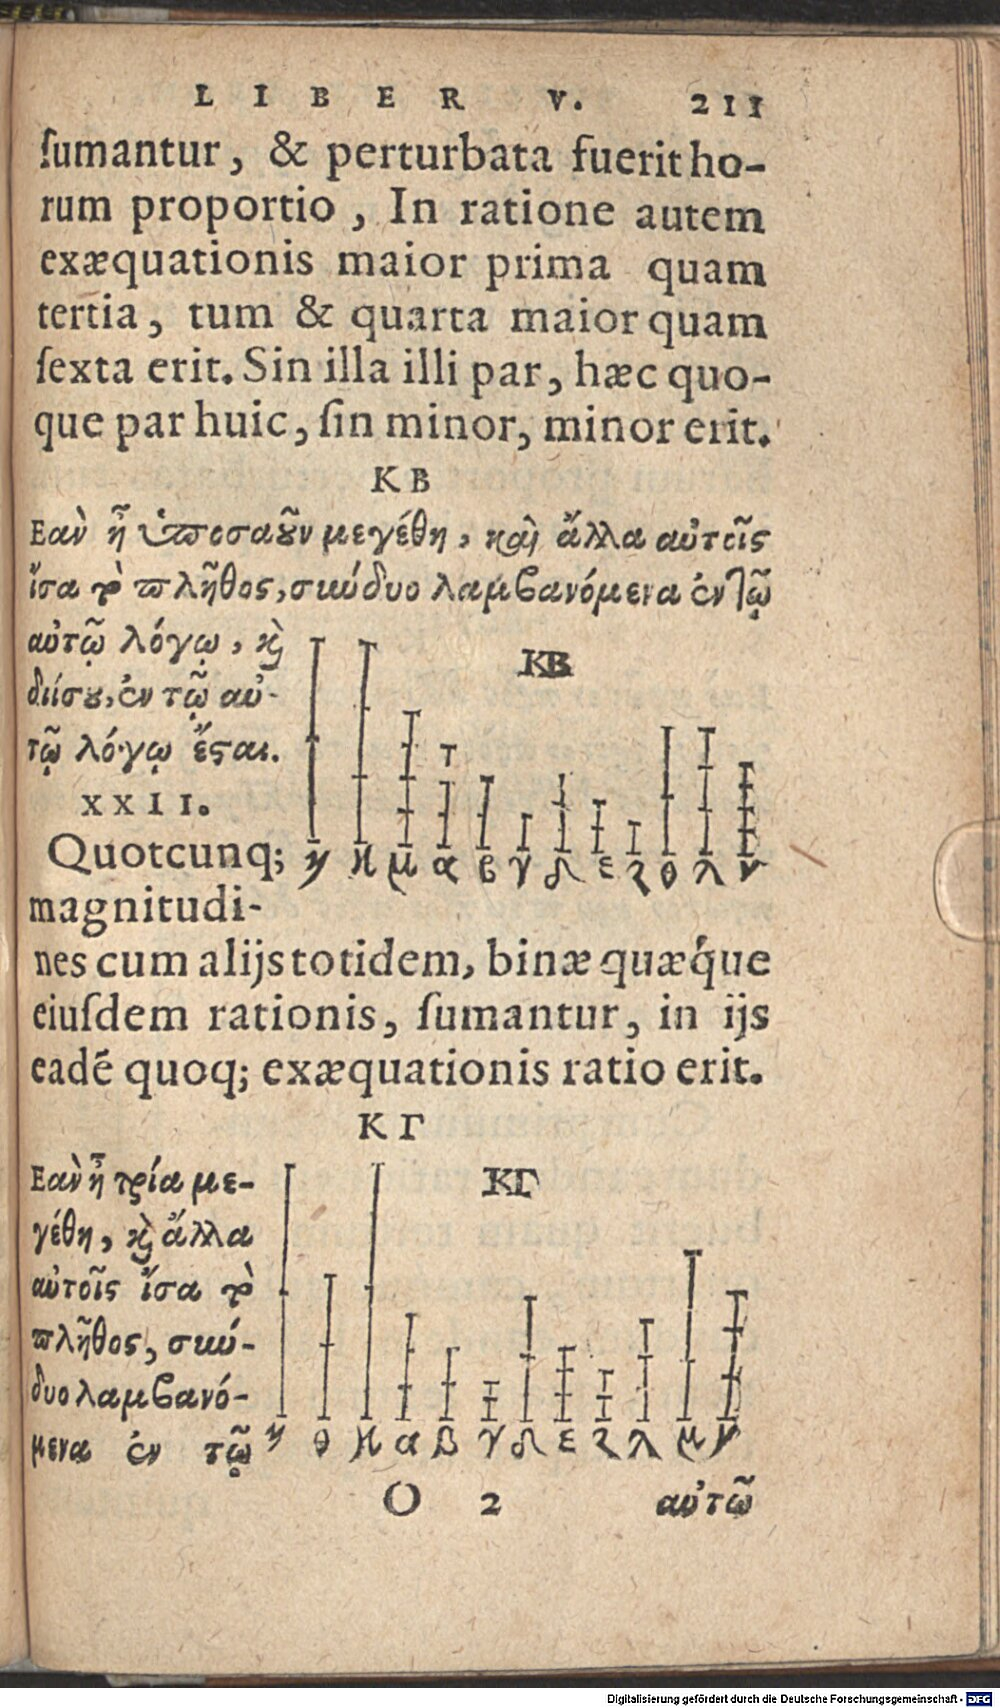 LIBER V. 211
ſumantur, & perturbata fuerit ho-
rum proportio, In ratione autem
exæquationis maior prima quam
tertia, tum & quarta maior quam
ſexta erit. Sin illa illi par, hæc quo-
que par huic, ſin minor, minor erit.
ΚΒ
Εὰν ᾖ ὁποσαοῦν μεγέθη, καὶ ἄλλα αὐτοῖς
ἴσα τὸ πλῆθος, σιωύδυο λαμβανόμενα ἐν τῷ
αὐτῷ λόγῳ, ϗ
διίσου, ἐν τῷ αὐ-
τῷ λόγῳ ἔσαι.
ΚΒ
XXII.
Quotcunq;
η κ μ α β γ δ ε ζ θ λ ν
magnitudi-
nes cum alijs totidem, binæ quæq́ue
eiuſdem rationis, ſumantur, in ijs
eadē quoq; exæquationis ratio erit.
ΚΓ
Εὰν ᾖ τρία με-
γέθη, ϗ ἄλλα
αὐτοῖς ἴσα τὸ
πλῆθος, σιωύ-
δυο λαμβανό-
μενα ἐν τῷ
ΚΓ
η θ κ α β γ δ ε ζ λ μ ν
O 2 αὐτῶ
Digitalisierung gefördert durch die Deutsche Forschungsgemeinschaft - DFG